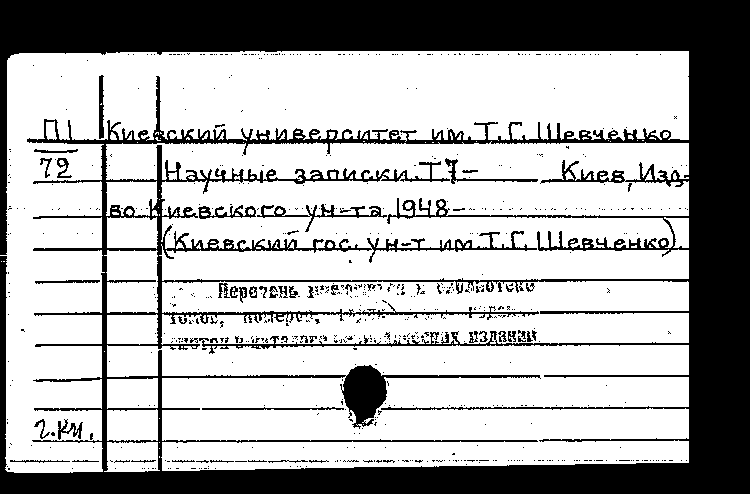 П1 Киевский университет им. Т.Г. Шевченко
72 Научные записки. Т 7- Киев, Изд-
во Киевского ун-та, 1948-
(Киевский гос. ун-т им. Т.Г. Шевченко).
Перечень в библиотеке
томов, номеров,
смотри в каталоге периодических изданий
г.кн.